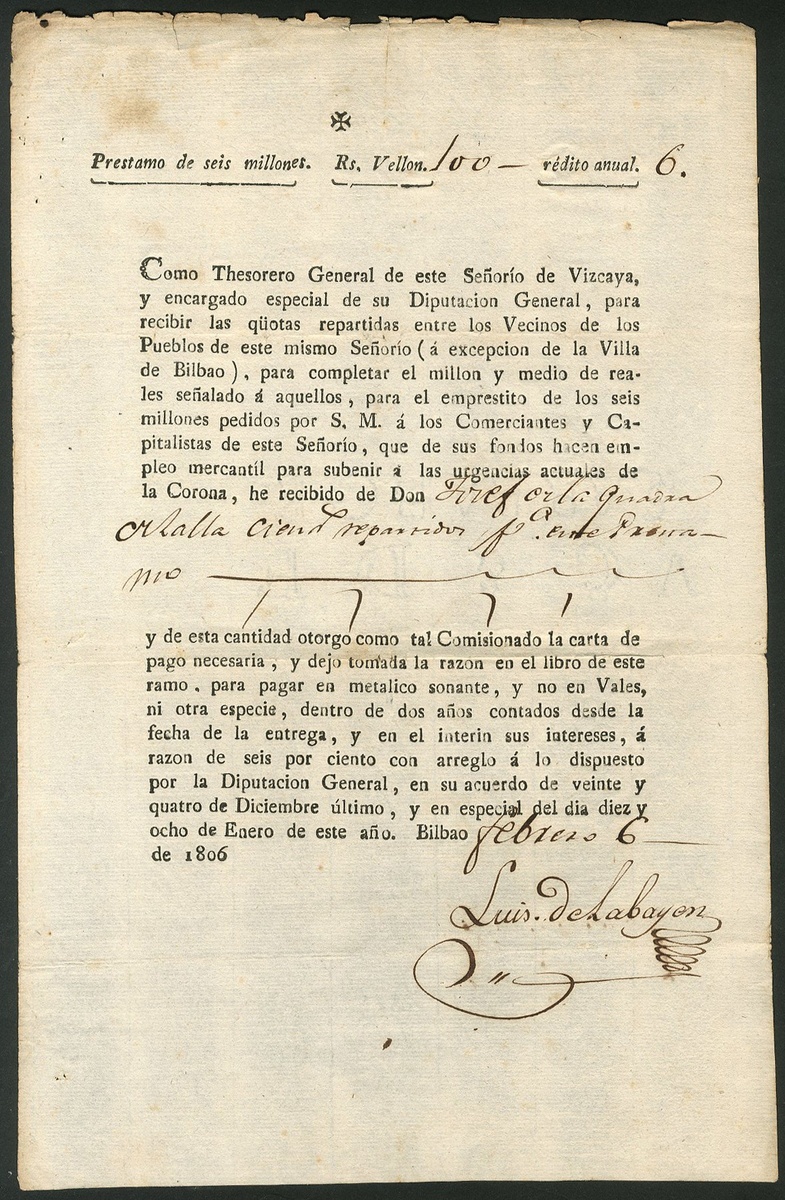 ✠
Prestamo de seis millones. Rs. Vellon. 100 — rédito anual. 6.
Como Thesorero General de este Señorío de Vizcaya,
y encargado especial de su Diputacion General, para
recibir las qüotas repartidas entre los Vecinos de los
Pueblos de este mismo Señorío (á excepcion de la Villa
de Bilbao), para completar el millon y medio de rea-
les señalado á aquellos, para el emprestito de los seis
millones pedidos por S. M. á los Comerciantes y Ca-
pitalistas de este Señorío, que de sus fondos hacen em-
pleo mercantíl para subenir á las urgencias actuales de
la Corona, he recibido de Don Josef de la Quadra
repartidos
y de esta cantidad otorgo como tal Comisionado la carta de
pago necesaria, y dejo tomada la razon en el libro de este
ramo, para pagar en metalico sonante, y no en Vales,
ni otra especie, dentro de dos años contados desde la
fecha de la entrega, y en el interin sus intereses, á
razon de seis por ciento con arreglo á lo dispuesto
por la Diputacion General, en su acuerdo de veinte y
quatro de Diciembre último, y en especial del dia diez y
ocho de Enero de este año. Bilbao febrero 6
de 1806
Luis. de Labayen